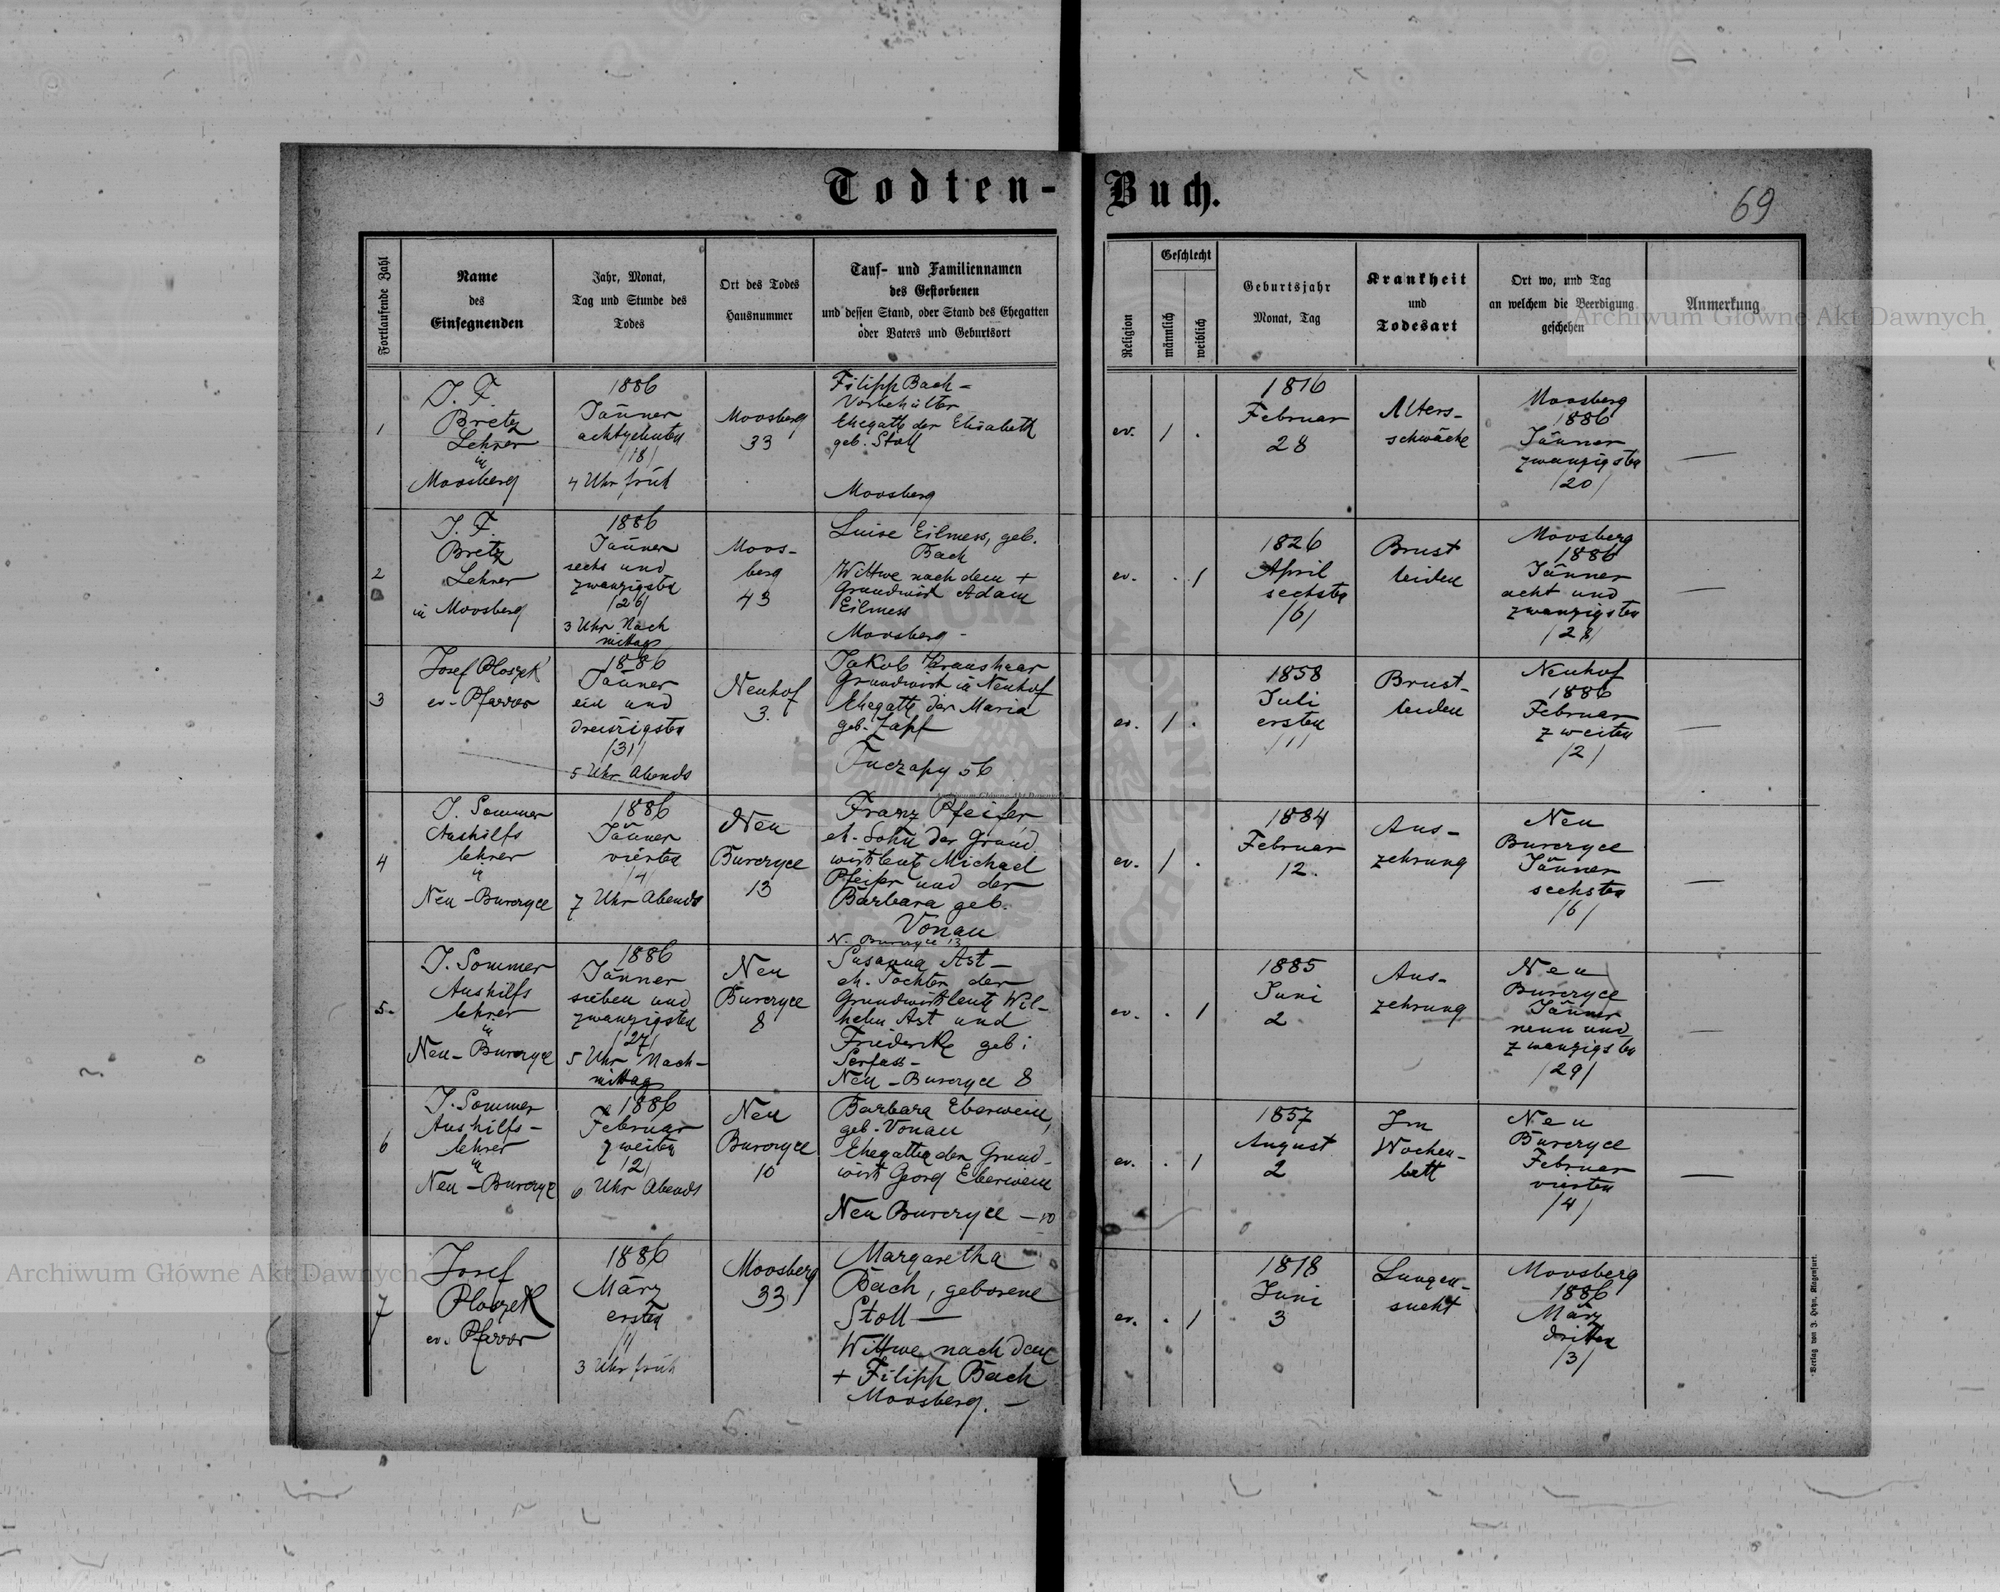 Todten-Buch.
69
Fortlaufende Zahl
Name
des
Einsegnenden
Jahr, Monat,
Tag und Stunde des
Todes
Ort des Todes
Hausnummer
Tauf- und Familiennamen
des Gestorbenen
und dessen Stand, oder Stand des Ehegatten
oder Vaters und Geburtsort
Religion
Geschlecht
männlich
weiblich
Geburtsjahr
Monat, Tag
Krankheit
und
Todesart
Ort wo, und Tag
an welchem die Beerdigung
geschehen
Anmerkung
1
J. F.
Bretz
Lehrer
in
Moosberg
1886
Jänner
achtzehnten
/18/
4 Uhr früh
Moosberg
33
Filipp Bach -
Vorbehälter
Ehegatte der Elisabeth
geb. Stoll
Moosberg
ev.
1
.
1816
Februar
28
Alters-
schwäche
Moosberg
1886
Jänner
zwanzigsten
/20/
—
2
J. F.
Bretz
Lehrer
in Moosberg
1886
Jänner
sechs und
zwanzigsten
/26/
3 Uhr Nach
mittags
Moos-
berg
43
Luise Eilmess, geb.
Bach
Wittwe nach dem +
Grundwirt Adam
Eilmess
Moosberg -
ev.
.
1
1826
April
sechsten
/6/
Brust
leiden
Moosberg
1886
Jänner
acht und
zwanzigsten
/28/
—
3
Josef Ploszek
ev. Pfarrer
1886
Jänner
ein und
dreisigsten
/31/
5 Uhr Abends
Neuhof
3.
Jakob Kraushaar
Grundwirt in Neuhof
Ehegatte der Maria
geb. Zapf
Tuczapy 56
ev.
1
.
1858
Juli
ersten
/1/
Brust-
leiden
Neuhof
1886
Februar
zweiten
/2/
—
4
J. Sommer
Aushilfs
lehrer
in
Neu-Burczyce
1886
Jänner
vierten
/4/
7 Uhr Abends
Neu
Burczyce
13
Franz Pfeifer
eh. Sohn der Grund
wirtsleute Michael
Pfeifer und der
Barbara geb.
Vonau
N. Burczyce 13
ev.
1
.
1884
Februar
12.
Aus-
zehrung
Neu
Burczyce
Jänner
sechsten
/6/
—
5.
J. Sommer
Aushilfs
lehrer
in
Neu-Burczyce
1886
Jänner
sieben und
zwanzigsten
/27/
5 Uhr Nach-
mittag
Neu
Burczyce
8
Susanna Ast -
eh. Tochter der
Grundwirtsleute Wil-
helm Ast und
Friederike geb:
Serfass -
Neu-Burczyce 8
ev.
.
1
1885
Juni
2
Aus-
zehrung
Neu
Burczyce
Jänner
neun und
zwanzigsten
/29/
—
6
J. Sommer
Aushilfs-
lehrer
in
Neu-Burczyce
1886
Februar
zweiten
/2/
6 Uhr Abends
Neu
Burczyce
10
Barbara Eberwein,
geb. Vonau
Ehegattin den Grund-
wirt Georg Eberwein
Neu Burczyce - 10
ev.
.
1
1857
August
2
Im
Wochen-
bett
Neu
Burczyce
Februar
vierten
/4/
—
7
Josef
Ploszek
ev. Pfarrer
1886
März
ersten
/1/
3 Uhr früh
Moosberg
33
Margaretha
Bach, geborene
Stoll —
Wittwe nach dem
+ Filipp Bach
Moosberg. -
ev.
.
1
1818
Juni
3
Lungen-
sucht
Moosberg
1886
März
dritten
/3/
Verlag von J. Heyn, Klagenfurt.
Archiwum Główne Akt Dawnych
Archiwum Główne Akt Dawnych
Archiwum Główne Akt Dawnych